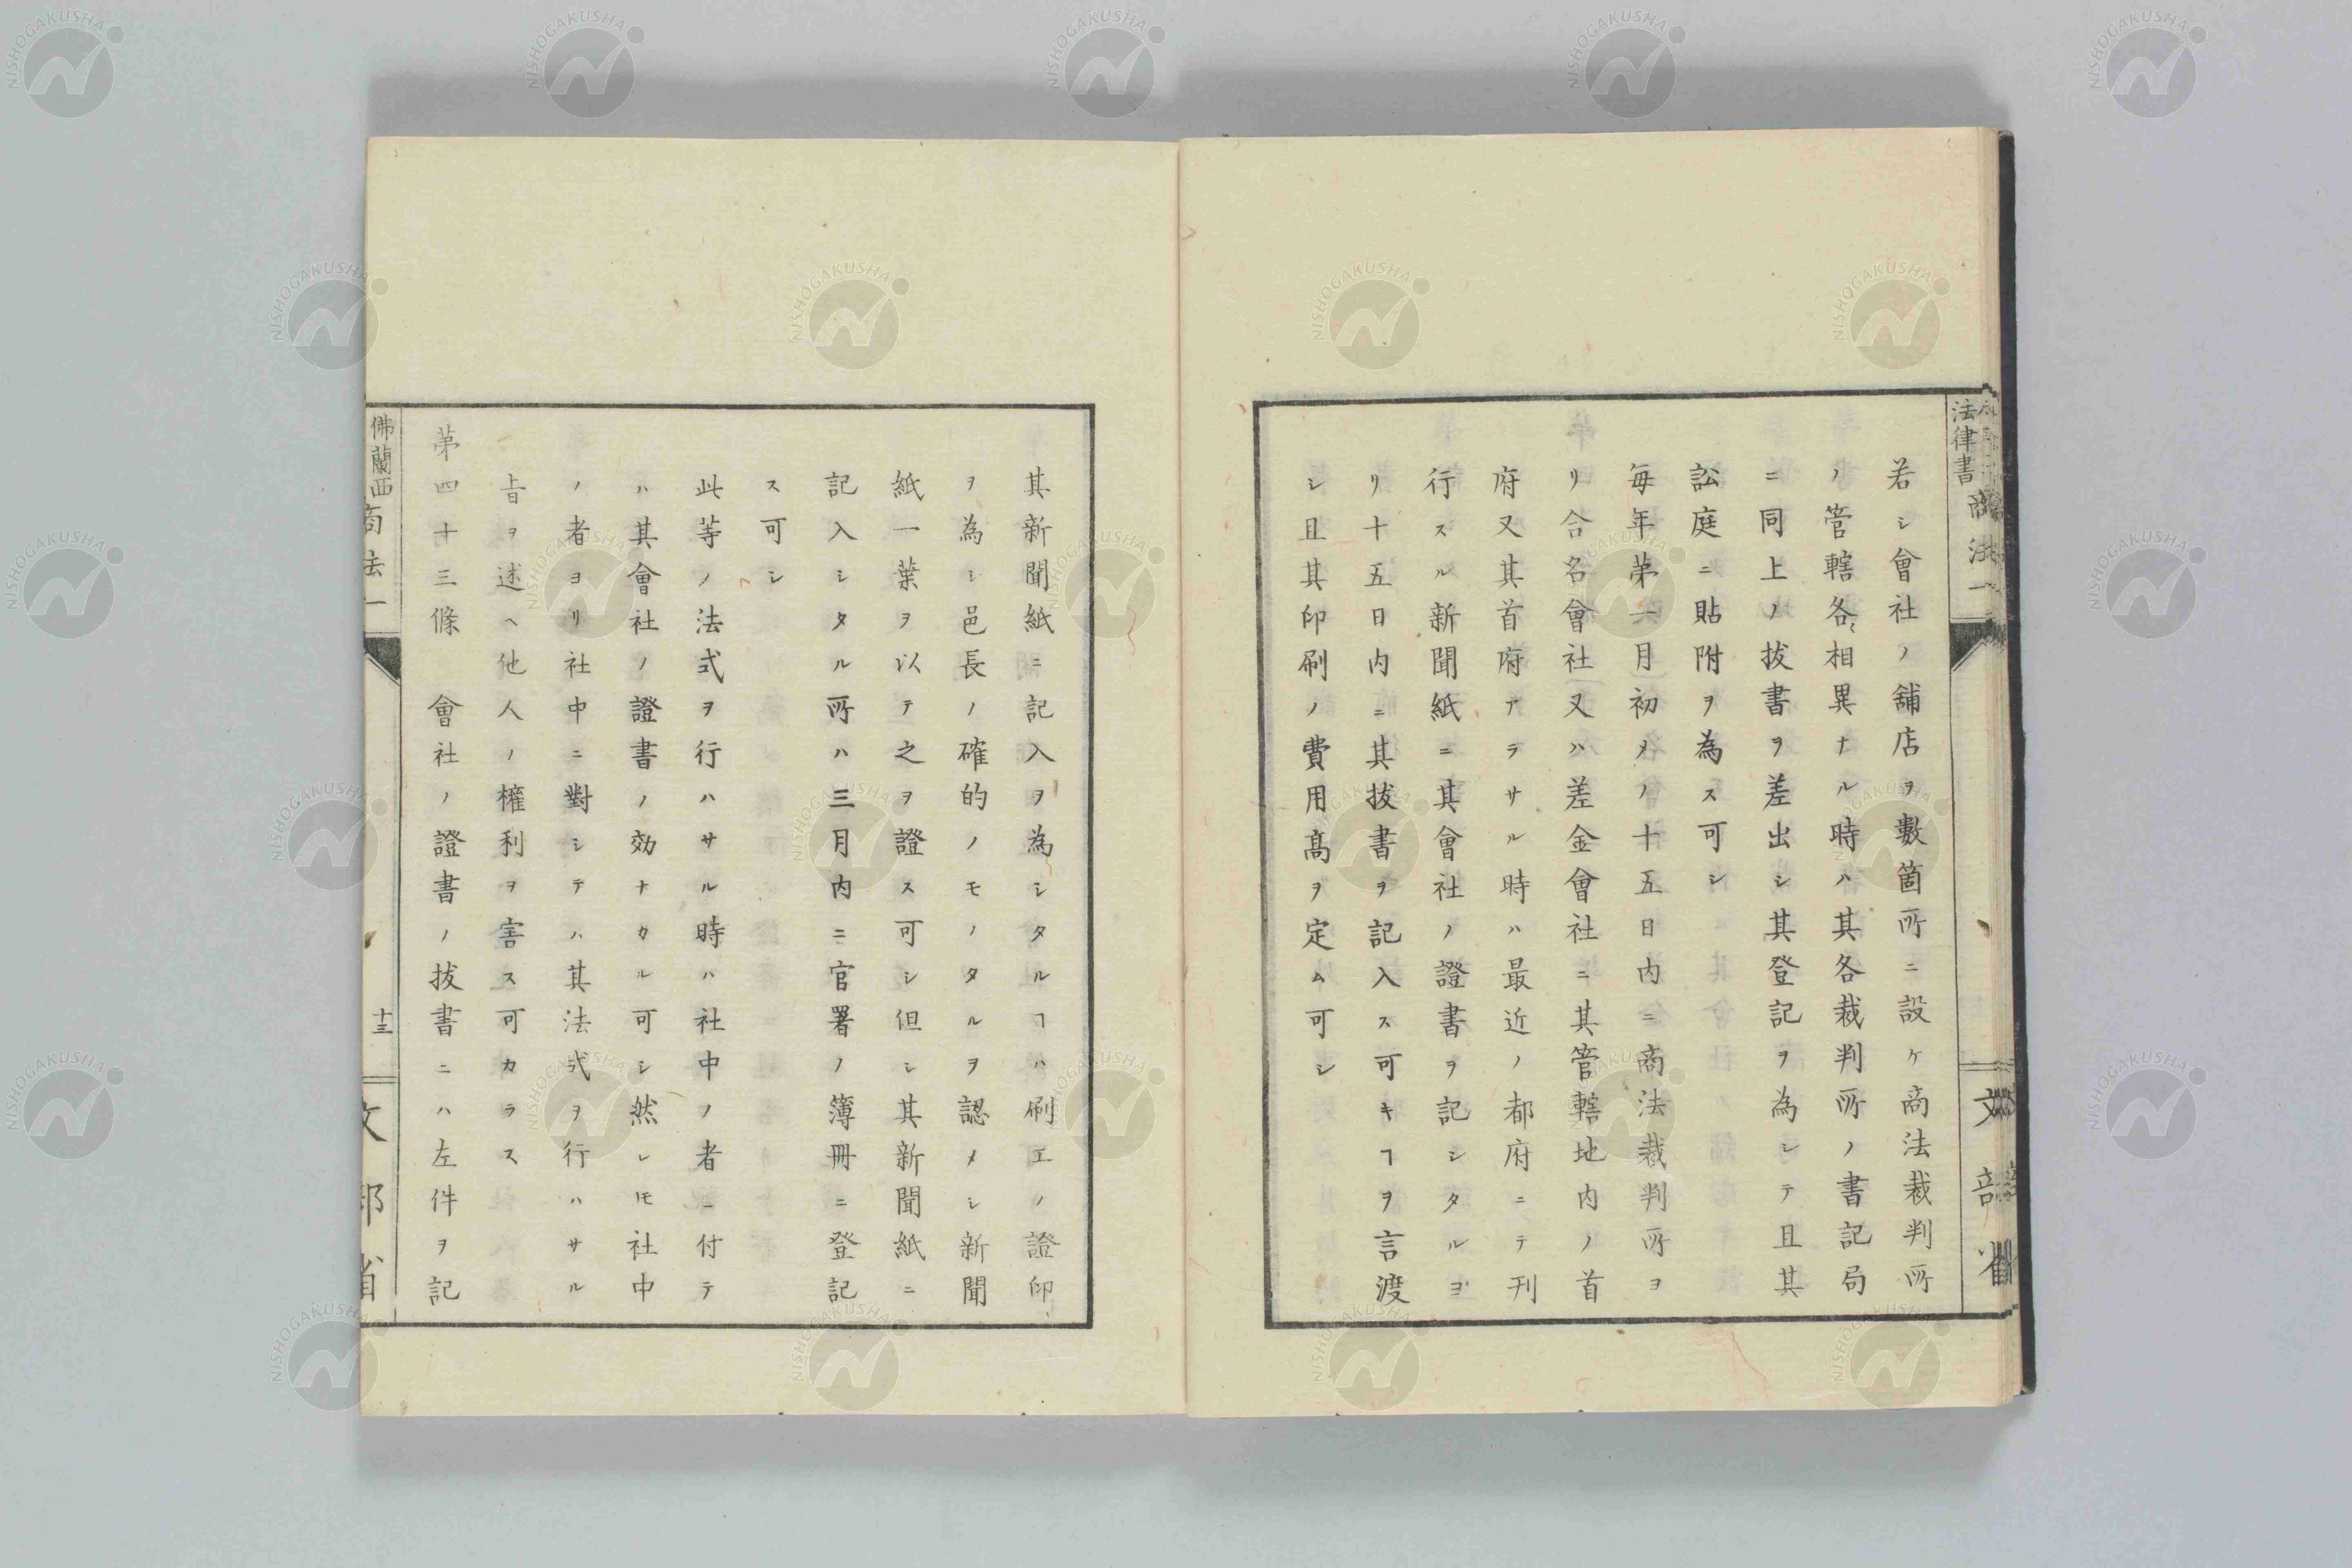 若シ會社ノ舗店ヲ數箇所ニ設ケ商法裁判所
ノ管轄各相異ナル時ハ其各裁判所ノ書記局
ニ同上ノ拔書ヲ差出シ其登記ヲ為シテ且其
訟庭ニ貼附ヲ為ス可シ
毎年第一月初メノ十五日内ニ商法裁判所ヨ
リ合名會社又ハ差金會社ニ其管轄地内ノ首
府又其首府アラサル時ハ最近ノ都府ニテ刊
行スル新聞紙ニ其會社ノ證書ヲ記シタルヨ
リ十五日内ニ其拔書ヲ記入ス可キヿヲ言渡
シ且其印刷ノ費用髙ヲ定ム可シ
法律書 商法一
文部省
其新聞紙ニ記入ヲ為シタルヿハ刷工ノ證印
ヲ為シ邑長ノ確的ノモノタルヲ認メシ新聞
紙一葉ヲ以テ之ヲ證ス可シ但シ其新聞紙ニ
記入シタル所ハ三月内ニ官署ノ簿冊ニ登記
ス可シ
此等ノ法式ヲ行ハサル時ハ社中ノ者ニ付テ
ハ其會社ノ證書ノ効ナカル可シ然レ𪜈社中
ノ者ヨリ社中ニ對シテハ其法式ヲ行ハサル
旨ヲ述ヘ他人ノ權利ヲ害ス可カラス
第四十三條 會社ノ證書ノ拔書ニハ左件ヲ記
佛蘭西 商法一
十三
文部省
NISHOGAKUSHA